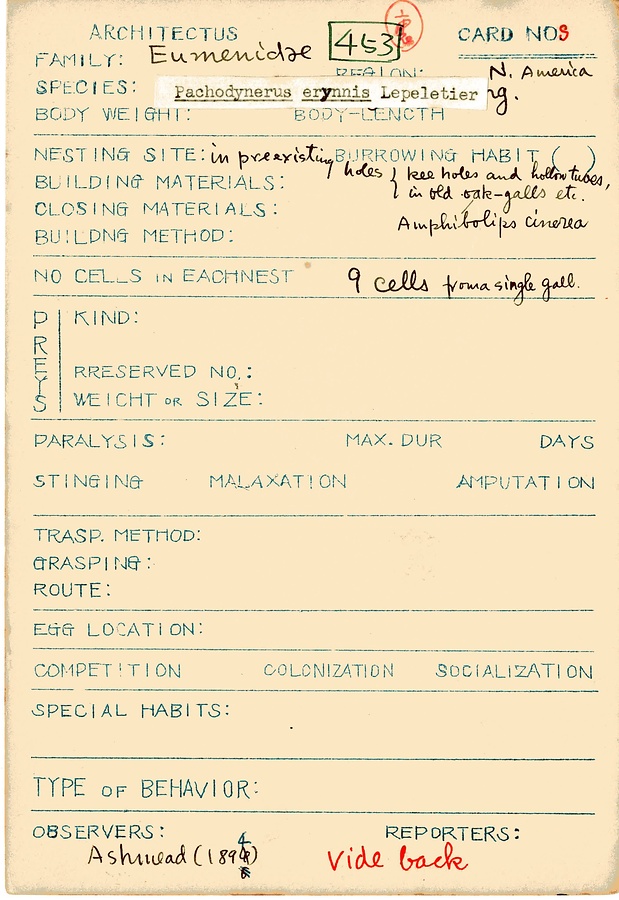 ARCHITECTUS CARD NOS
FAMILY: Eumenidae 453
REGION: N. America
SPECIES: Pachodynerus erynnis Lepeletier
BODY WEIGHT: BODY-LENGTH
NESTING SITE: in preexisting holes BURROWING HABIT ( )
BUILDING MATERIALS: kee holes and hollow tubes,
in old oak-galls etc.
CLOSING MATERIALS: Amphibolips cinerea
BUILDNG METHOD:
NO CELLS IN EACHNEST 9 cells from a single gall.
PREYS
KIND:
RRESERVED NO.:
WEIGHT OR SIZE:
PARALYSIS: MAX. DUR DAYS
STINGING MALAXATION AMPUTATION
TRASP. METHOD:
GRASPING:
ROUTE:
EGG LOCATION:
COMPETITION COLONIZATION SOCIALIZATION
SPECIAL HABITS:
TYPE OF BEHAVIOR:
OBSERVERS: REPORTERS:
Ashmead (1894) Vide back